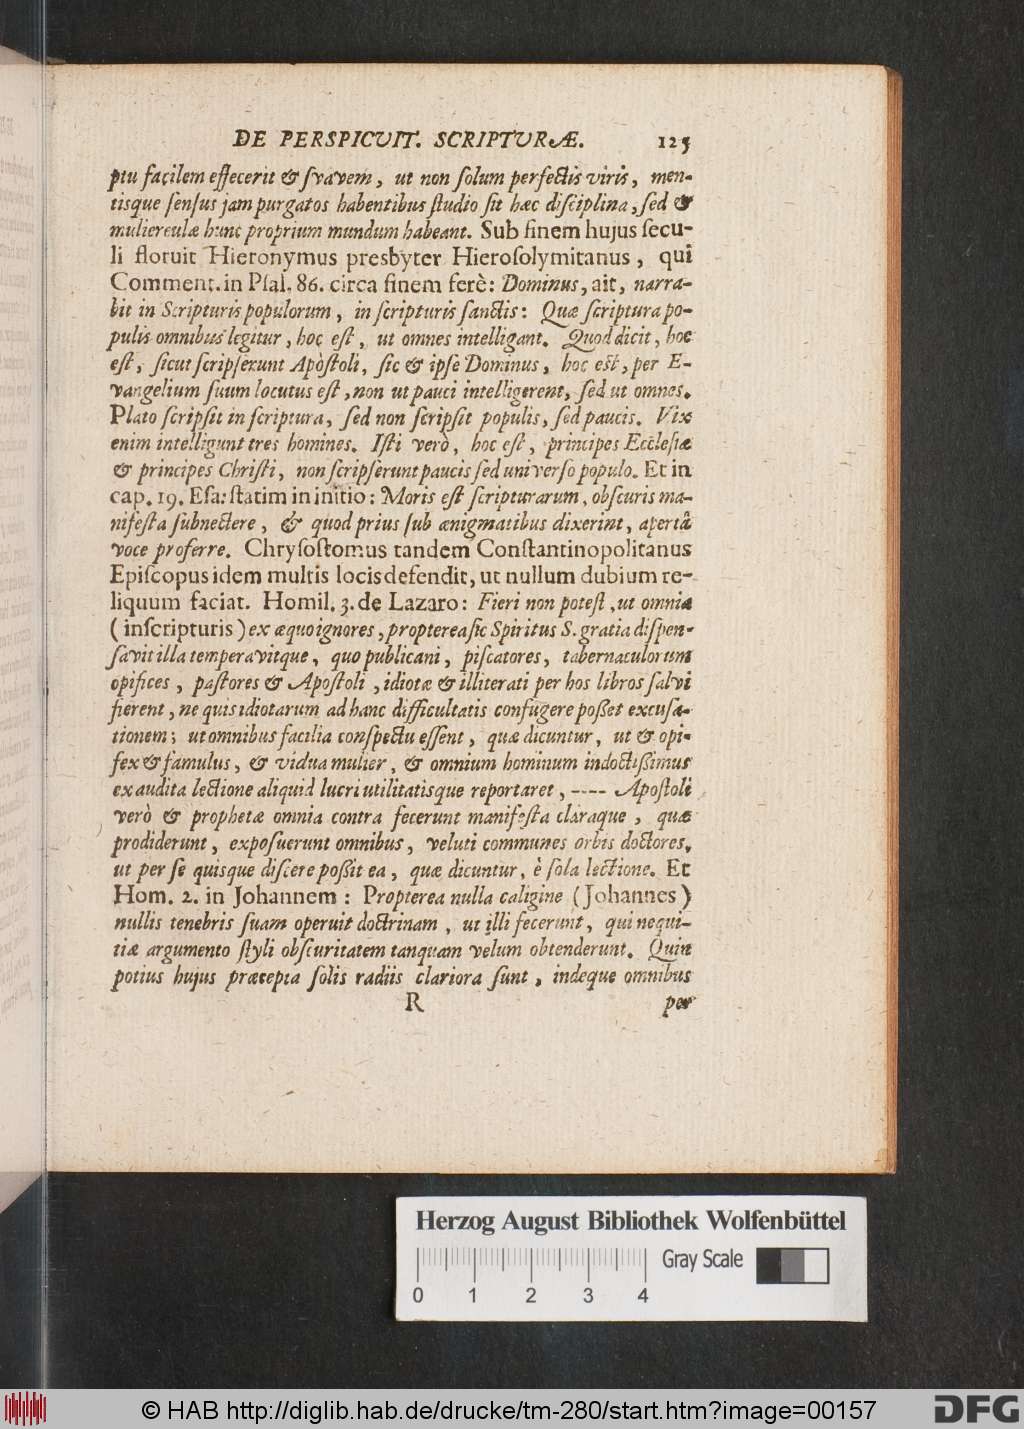 DE PERSPICUIT. SCRIPTURÆ. 125
ptu facilem effecerit & ſvavem, ut non ſolum perfectis viris, men-
tisque ſenſus jam purgatos habentibus ſtudio ſit hæc diſciplina, ſed &
mulierculæ hunc proprium mundum habeant. Sub finem hujus ſecu-
li floruit Hieronymus presbyter Hieroſolymitanus, qui
Comment. in Pſal. 86. circa finem ferè: Dominus, ait, narra-
bit in Scripturis populorum, in ſcripturis ſanctis: Quæ ſcriptura po-
pulis omnibus legitur, hoc eſt, ut omnes intelligant. Quod dicit, hoc
eſt, ſicut ſcripſerunt Apòſtoli, ſic & ipſe Dominus, hoc eſt, per E-
vangelium ſuum locutus eſt, non ut pauci intelligerent, ſed ut omnes.
Plato ſcripſit in ſcriptura, ſed non ſcripſit populis, ſed paucis. Vix
enim intelligunt tres homines. Iſti verò, hoc eſt, principes Eccleſiæ
& principes Chriſti, non ſcripſerunt paucis ſed univerſo populo. Et in
cap. 19. Eſa: ſtatim in initio: Moris eſt ſcripturarum, obſcuris ma-
nifeſta ſubnectere, & quod prius ſub ænigmatibus dixerint, apertâ
voce proferre. Chryſoſtomus tandem Conſtantinopolitanus
Epiſcopus idem multis locis defendit, ut nullum dubium re-
liquum faciat. Homil. 3. de Lazaro: Fieri non poteſt, ut omnia
(in ſcripturis) ex æquo ignores, propterea ſic Spiritus S. gratia diſpen-
ſavit illa temperavitque, quo publicani, piſcatores, tabernaculorum
opifices, paſtores & Apoſtoli, idiotæ & illiterati per hos libros ſalvi
fierent, ne quis idiotarum ad hanc difficultatis confugere poßet excuſa-
tionem; ut omnibus facilia conſpectu eſſent, quæ dicuntur, ut & opi-
fex & famulus, & vidua mulier, & omnium hominum indoctißimus
ex audita lectione aliquid lucri utilitatisque reportaret, ---- Apoſtoli
verò & prophetæ omnia contra fecerunt manifeſta claraque, quæ
prodiderunt, expoſuerunt omnibus, veluti communes orbis doctores,
ut per ſe quisque diſcere poßit ea, quæ dicuntur, è ſola lectione. Et
Hom. 2. in Johannem: Propterea nulla caligine (Johannes)
nullis tenebris ſuam operuit doctrinam, ut illi fecerunt, qui nequi-
tiæ argumento ſtyli obſcuritatem tanquam velum obtenderunt. Quin
potius hujus præcepta ſolis radiis clariora ſunt, indeque omnibus
R per
Herzog August Bibliothek Wolfenbüttel
Gray Scale
0 1 2 3 4
© HAB http://diglib.hab.de/drucke/tm-280/start.htm?image=00157 DFG